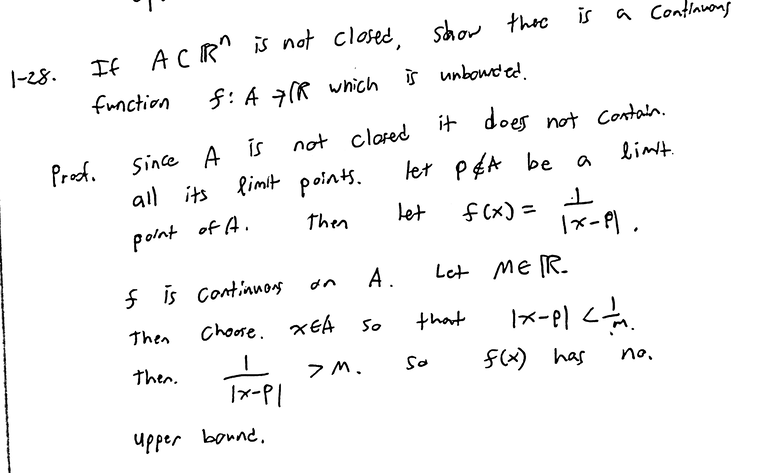 1-28. If A ⊂ ℝⁿ is not closed, show thec is a continuous
function f: A → ℝ which is unbounded.
Proof. Since A is not closed it does not contain.
all its limit points. let p ∉ A be a limit
point of A. Then let f(x) = 1/|x-p|.
f is continuous on A. Let M ∈ ℝ.
Then choose. x ∈ A so that |x-p| < 1/M.
Then. 1/|x-p| > M. so f(x) has no.
upper bound.